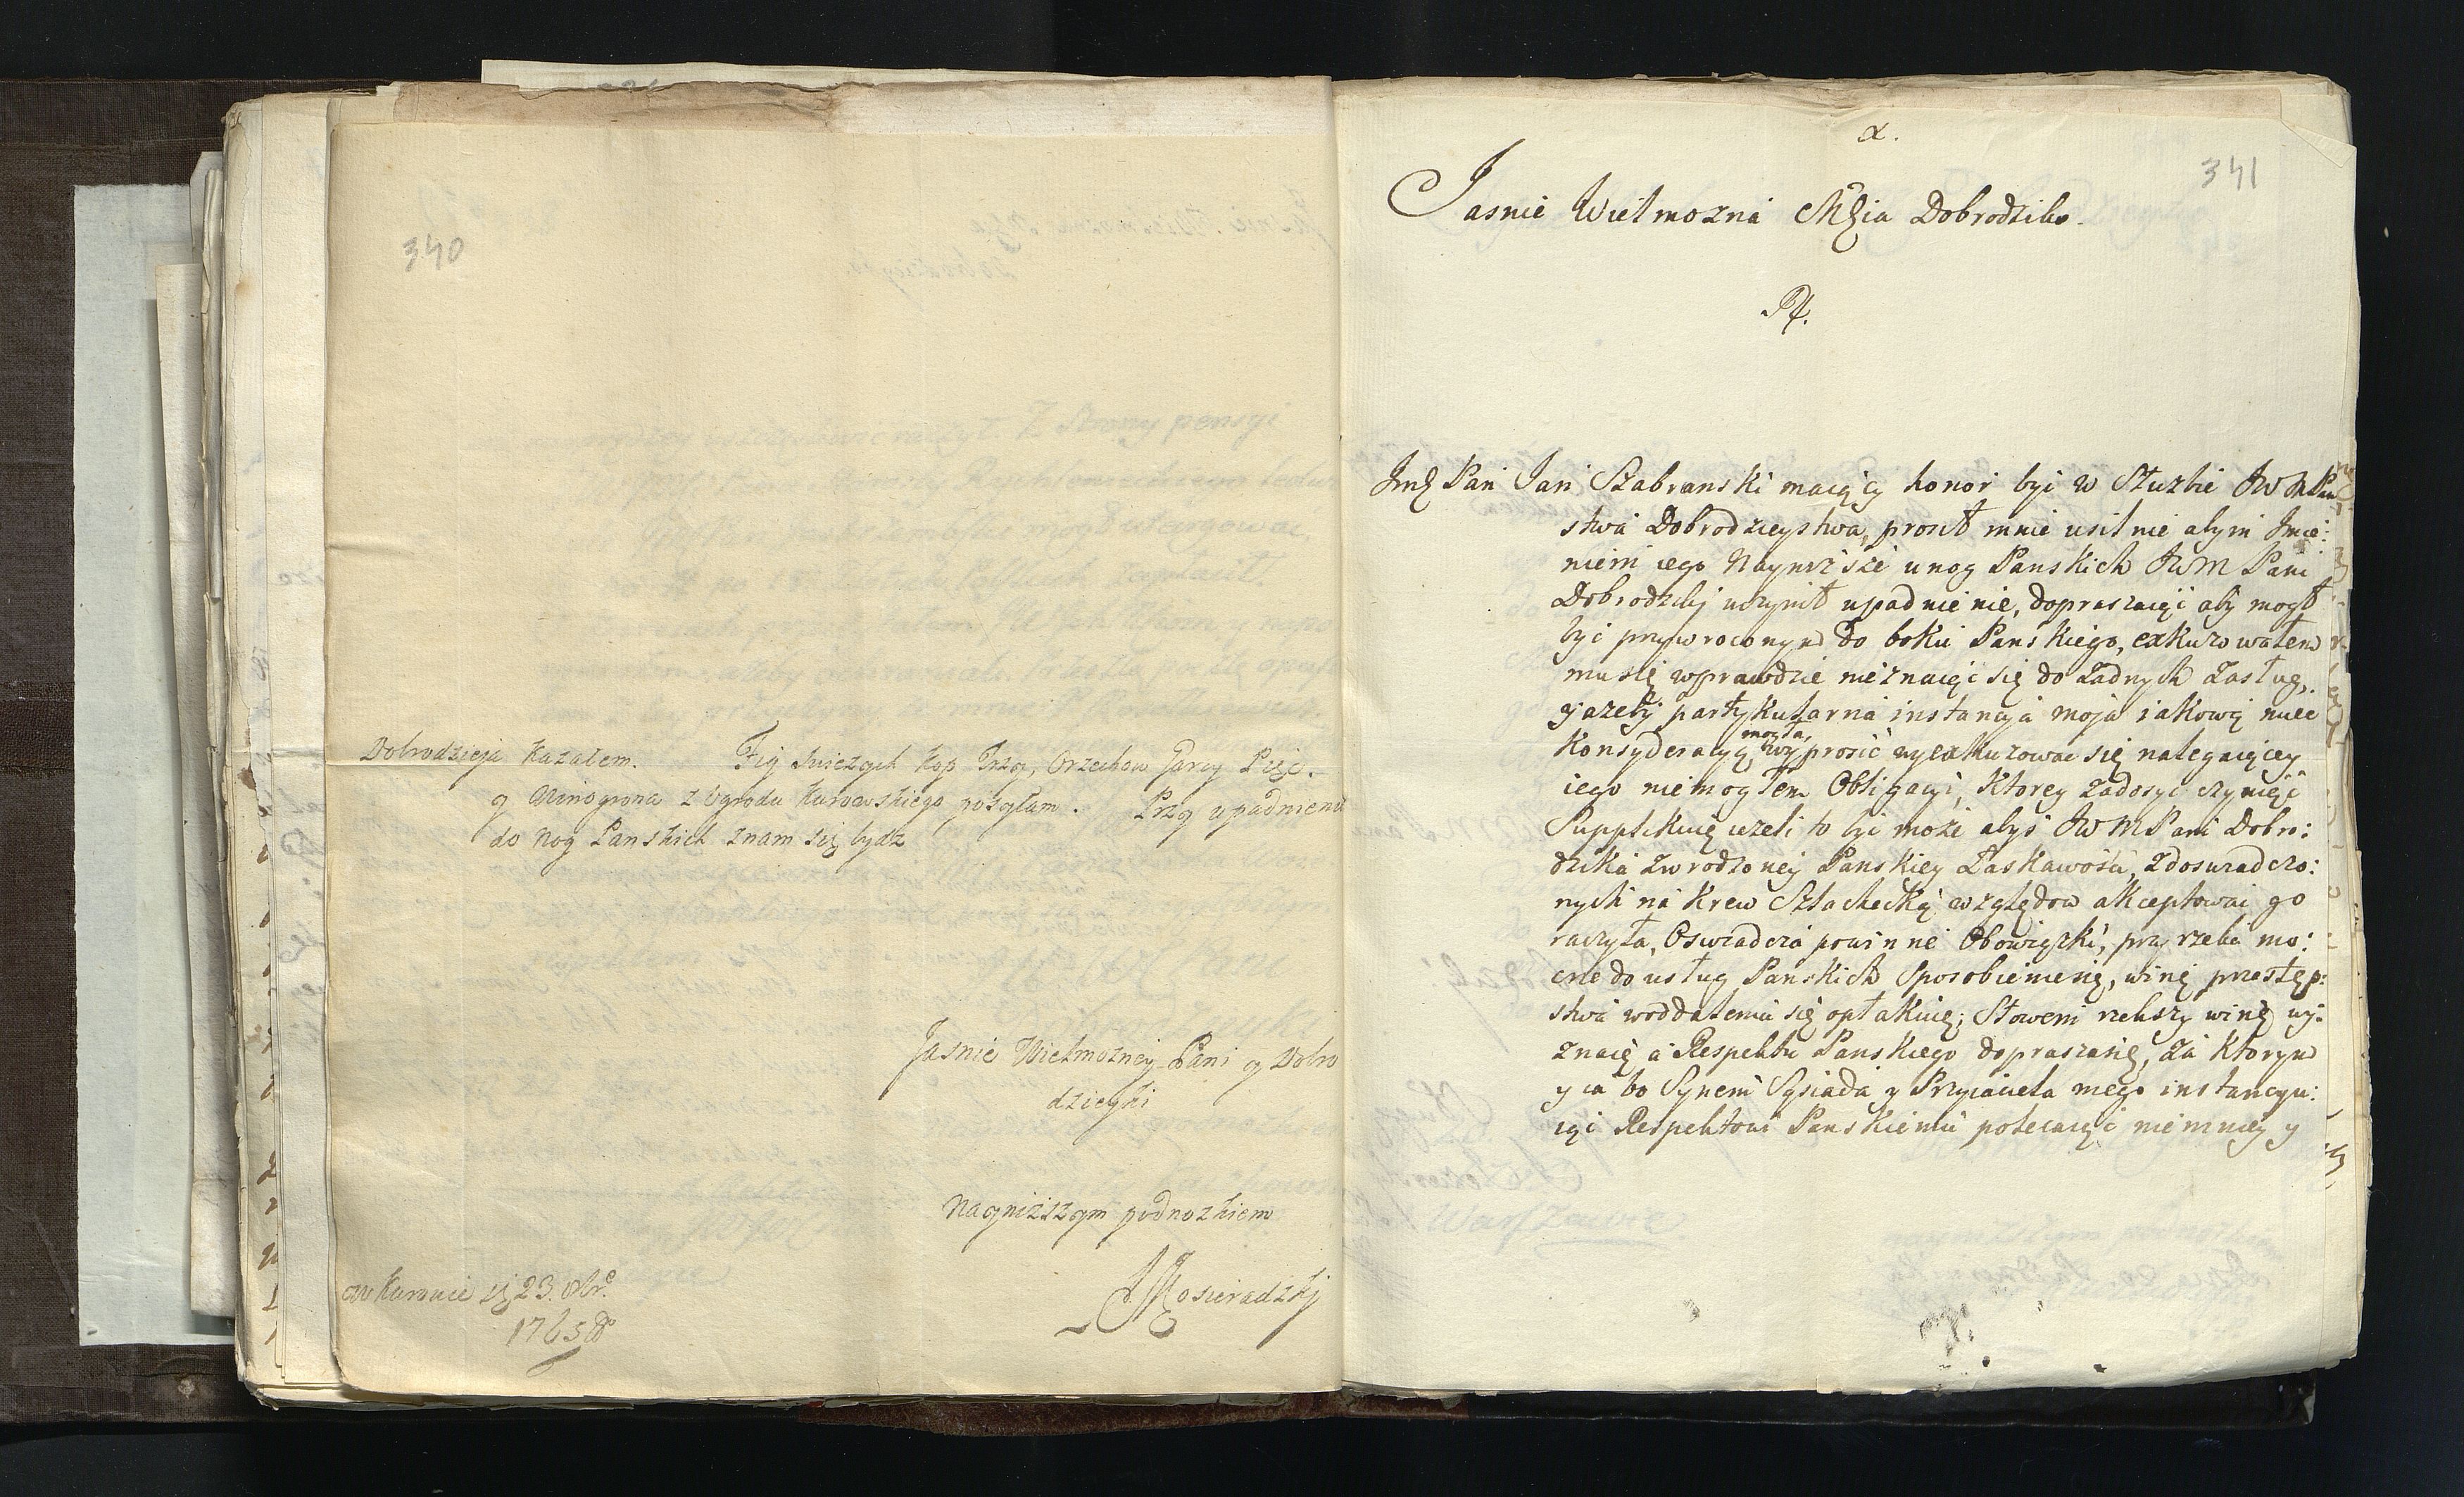 340
Dobrodzieja Kazałem. Fig swiezych kop Trzy, Orzechow Garcy Pięć.
y Winogrona z Ogrodu Kurowskiego posyłam. Przy upadnieniu
do nog Panskich znam się bydz
Jasnie Wielmozney Pani y Dobro
dzieyki
Nayniższym podnozkiem
w Kurowie d 23. 8br.
1765
JMosieradzkj
α.
341
Jasnie Wielmozna Mścia Dobrodziko.
Imć Pan Jan Szabranski maiący honor być w Służbie JWMPań
stwa Dobrodzieystwa, prosił mnie usilnie abym Imie:
niem iego Nayniższe u nog Panskich JWM Pani
Dobrodziki uczynił upadnienie, dopraszaiąc aby mogł
być przywroconym do boku Panskiego, exkuzowałem
mu się wprawdzie nieznaiąc się do Żadnych Zasług,
ażeby partykularna instancya moja iakową mieć
Konsyderacyą, mogła, wyprosić wyexkuzować się nalegaiącey
iego niemogłem Obligacyi, Ktorey Zadosyc czyniąc
Supplikuię ieżeli to być może abyś JWMPani Dobro:
dzika zwrodzoney Panskiey Łaskawości, zdoswiadczo:
nych na Krew Szlachecką względow akceptować go
raczyła, Oswiadcza powinne Obowiązki, przyrzeka mo:
cne do usług Panskich Sposobienie się, winę przestęp:
stwa w oddaleniu się opłakuię; Słowem rzekszy winę wy:
znaię a Respektu Panskiego doprasza się, Za Ktorym
y ia bo Synem Sąsiada y Przyiaciela mego instancyu:
iąc Respektowi Panskiemu polecaiąc niemniey y